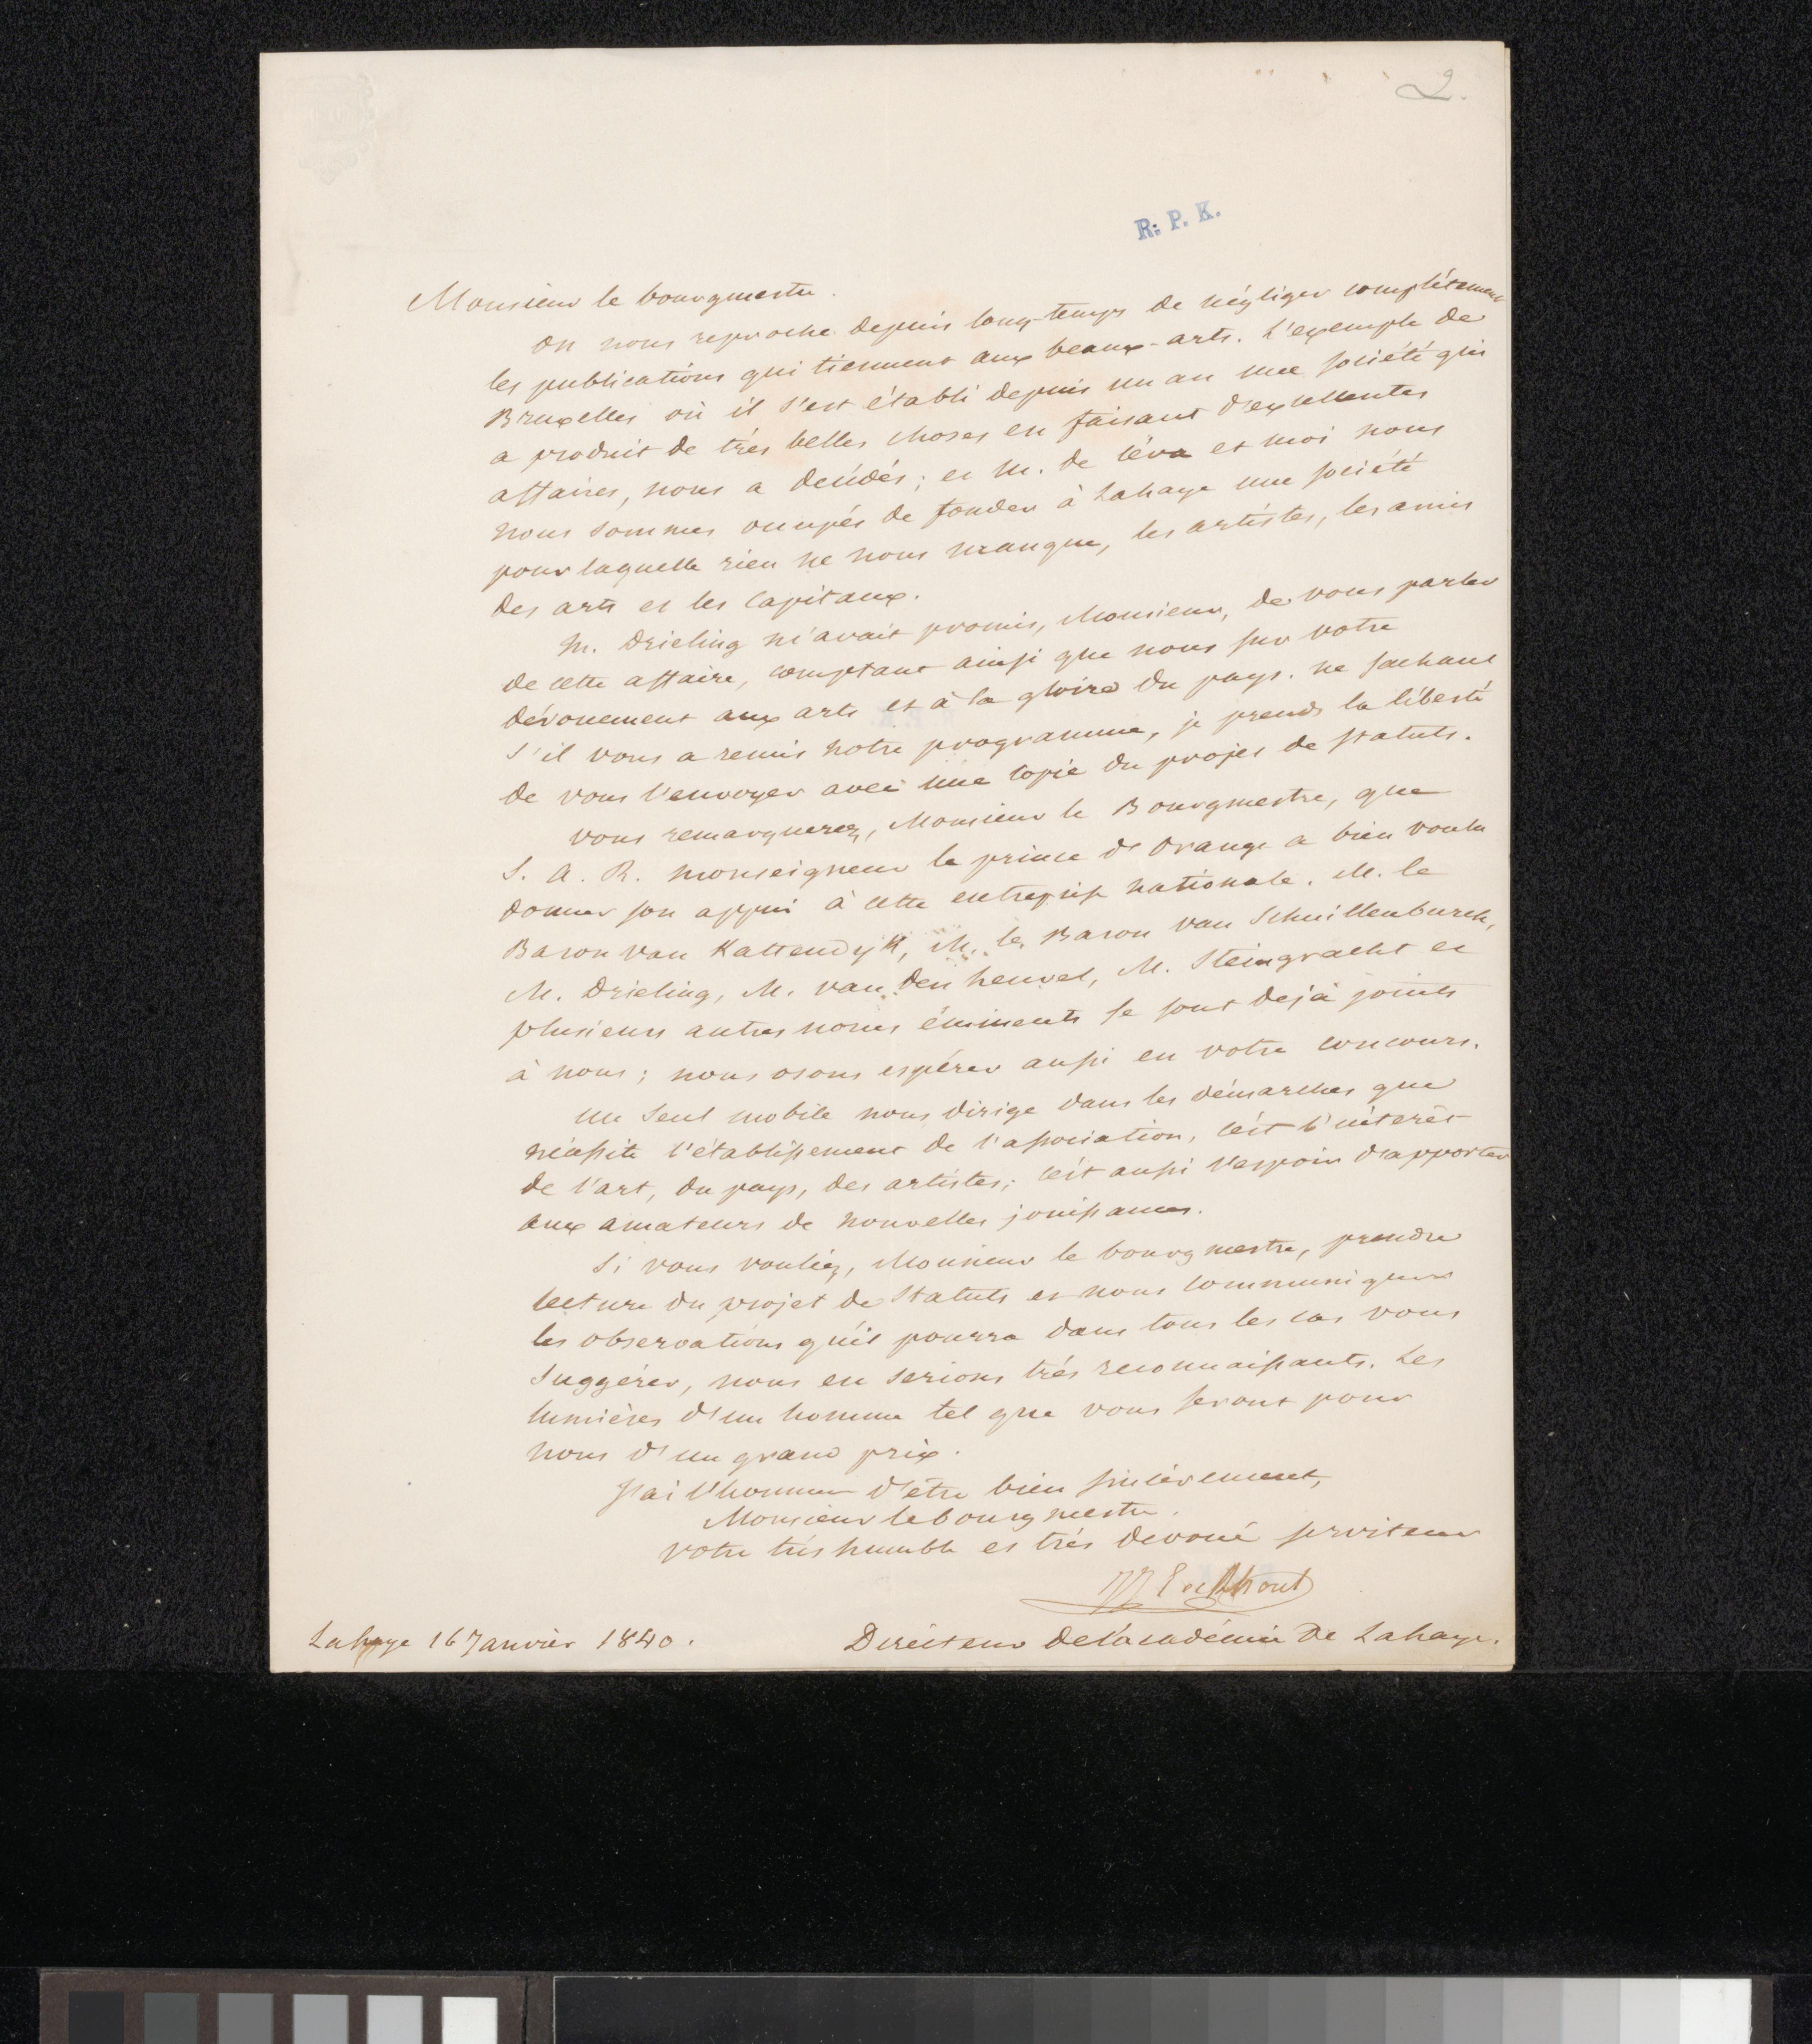 2.
R. P. K.
Monsieur le bourgmestre.
On nous reproche depuis long-temps de négliger complétement
les publications qui tiennent aux beaux-arts. L'exemple de
Bruxelles où il s'est établi depuis un an une société qui
a produit de très belles choses en faisant d'excellentes
affaires, nous a décidés; et M. de Céva et moi nous
nous sommes occupés de fonder à Lahaye une société
pour laquelle rien ne nous manque, les artistes, les amis
des arts et les capitaux.
M. Drieling m'avait promis, Monsieur, de vous parler
de cette affaire, comptant ainsi que nous sur votre
dévouement aux arts et à la gloire du pays. ne sachant
s'il vous a remis notre programme, je prends la liberté
de vous l'envoyer avec une copie du projet de statuts.
vous remarquerez, Monsieur le Bourgmestre, que
S. A. R. monseigneur le prince d'Orange a bien voulu
donner son appui à cette entreprise nationale. M. le
Baron van Kattendyk, M. le Baron van Schuillenburch,
M. Drieling, M. van den heuvel, M. Steingracht et
plusieurs autres noms éminents se sont dejà joints
à nous; nous osons espérer aussi en votre concours.
un seul mobile nous dirige dans les démarches que
nécessite l'établissement de l'association, c'est l'intérêt
de l'art, du pays, des artistes; c'est aussi l'espoir d'apporter
aux amateurs de nouvelles jouissances.
Si vous vouliez, Monsieur le bourgmestre, prendre
lecture du projet de statuts et nous communiquer
les observations qu'il pourra dans tous les cas vous
suggérer, nous en serions très reconnaissants. Les
lumières d'un homme tel que vous seront pour
nous d'un grand prix.
J'ai l'honneur d'être bien sincèrement,
Monsieur le bourgmestre.
votre très humble et très devoué serviteur
JJ Eeckhout
Lahaye 16 Janvier 1840.
Directeur de l'académie de Lahaye.